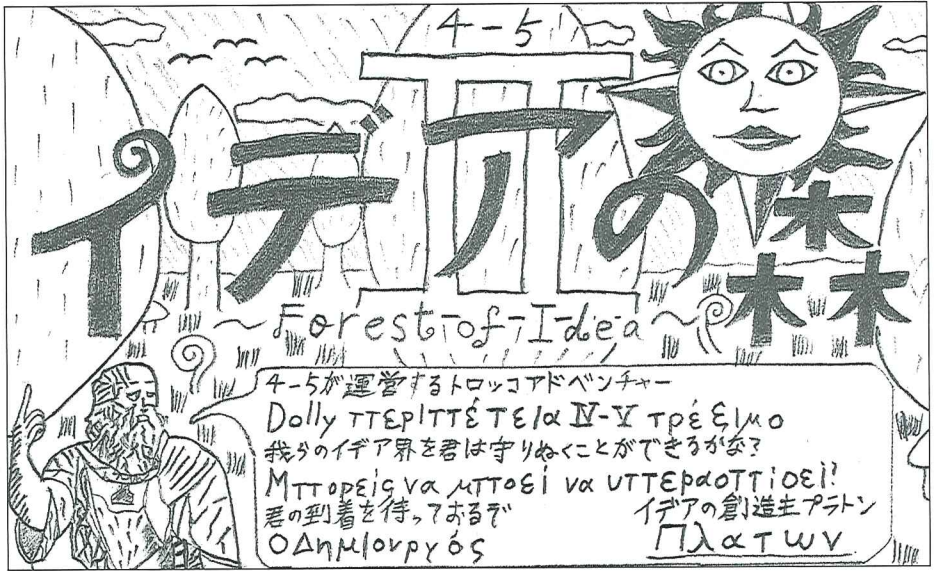 4-5
イデアの森
～Forest-of-Idea～
4-5が運営するトロッコアドベンチャー
Dolly περιπέτεια Ⅳ-Ⅴ τρέξιμο
我らのイデア界を君は守りぬくことができるかな?
Μπορείς να μποεί να υπεραοπίοει!
君の到着を待っておるぞ
イデアの創造主プラトン
ΟΔημιουργός
Πλατων